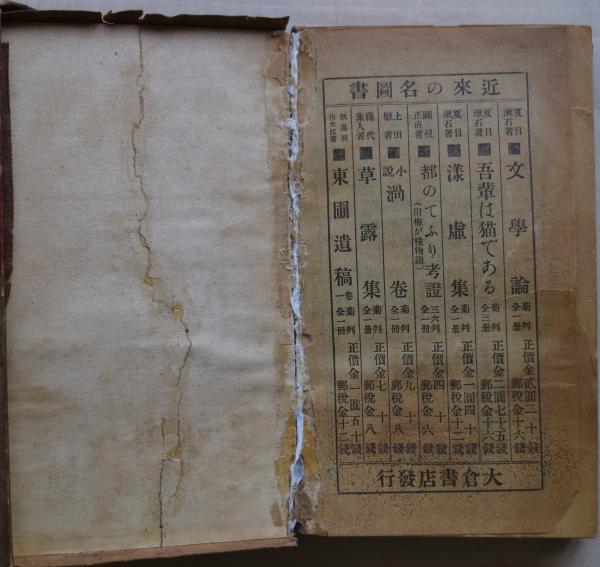 近來の名圖書
夏目漱石著 文學論 菊判全一册 正價金貳圓二十錢 郵税金十六錢
夏目漱石著 吾輩は猫である 菊判全三册 正價金二圓七十五錢 郵税金十六錢
夏目漱石著 漾虛集 菊判全一册 正價金一圓四十錢 郵税金十二錢
關根正直著 都のてふり考證 (附梅が枝物語) 三六判全一册 正價金四十錢 郵税金六錢
上田敏著 小説 渦卷 菊判全一册 正價金九十錢 郵税金八錢
藤代素人著 草露集 菊判全一册 正價金七十錢 郵税金八錢
故藤岡作太郎著 東圃遺稿 卷一 菊判全一冊 正價金一圓五十錢 郵税金十二錢
大倉書店發行